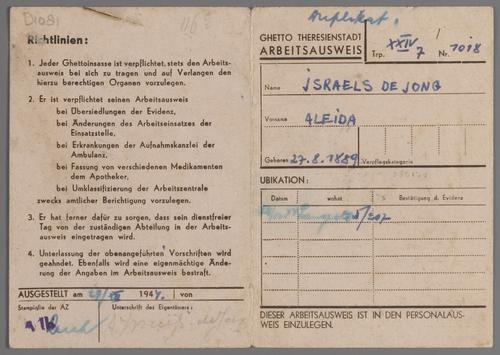 D1081
Richtlinien:
1. Jeder Ghettoinsasse ist verpflichtet, stets den Arbeits-
ausweis bei sich zu tragen und auf Verlangen den
hierzu berechtigten Organen vorzulegen.
2. Er ist verpflichtet seinen Arbeitsausweis
bei Übersiedlungen der Evidenz,
bei Änderungen des Arbeitseinsatzes der
Einsatzstelle,
bei Erkrankungen der Aufnahmskanzlei der
Ambulanz,
bei Fassung von verschiedenen Medikamenten
dem Apotheker,
bei Umklassifizierung der Arbeitszentrale
zwecks amtlicher Berichtigung vorzulegen.
3. Er hat ferner dafür zu sorgen, dass sein dienstfreier
Tag von der zuständigen Abteilung in der Arbeits-
ausweis eingetragen wird.
4. Unterlassung der obenangeführten Vorschriften wird
geahndet. Ebenfalls wird eine eigenmächtige Ände-
rung der Angaben im Arbeitsausweis bestraft.
AUSGESTELLT am 1944. von
Stampiglie der AZ Unterschrift des Eigentümers:
Duplikat.
GHETTO THERESIENSTADT
ARBEITSAUSWEIS Trp. XXIV/7 Nr. 1018
Name ISRAELS DE JONG
Vorname ALEIDA
Geboren 27.8.1889 Verpflegskategorie
UBIKATION:
Datum wohnt Bestätigung d. Evidenz
DIESER ARBEITSAUSWEIS IST IN DEN PERSONALAUS-
WEIS EINZULEGEN.